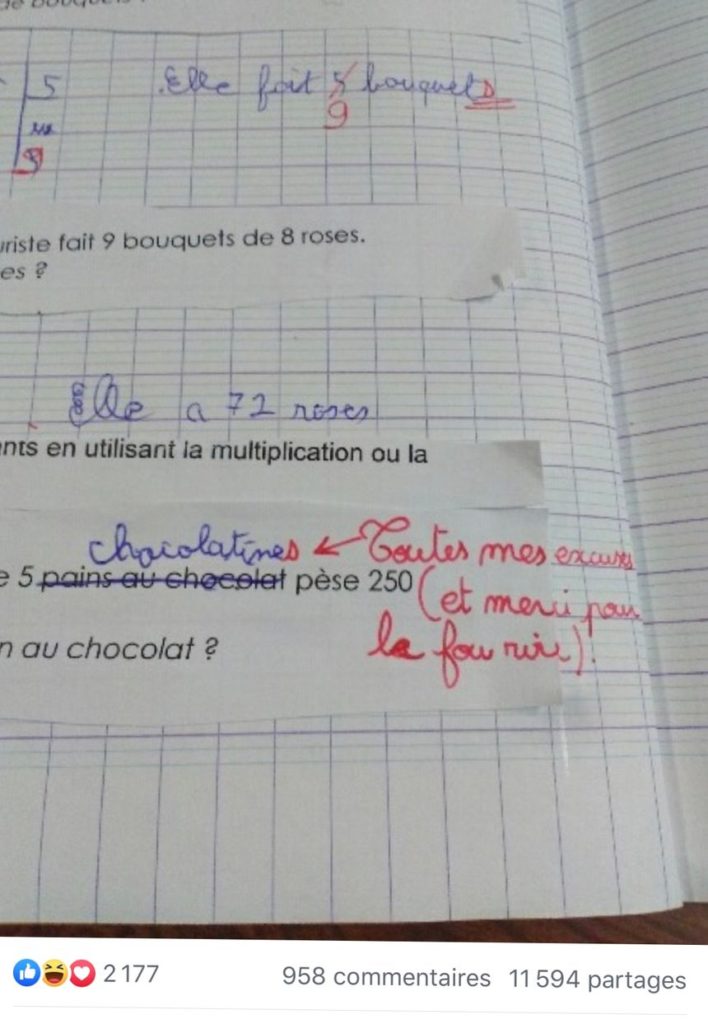 5
Elle fait 5 bouquets
9
uriste fait 9 bouquets de 8 roses.
es ?
Elle a 72 roses
nts en utilisant la multiplication ou la
chocolatines ← Toutes mes excuses
e 5 pains au chocolat pèse 250 (et merci pour
n au chocolat ? le fou rire)!
2 177 958 commentaires 11 594 partages